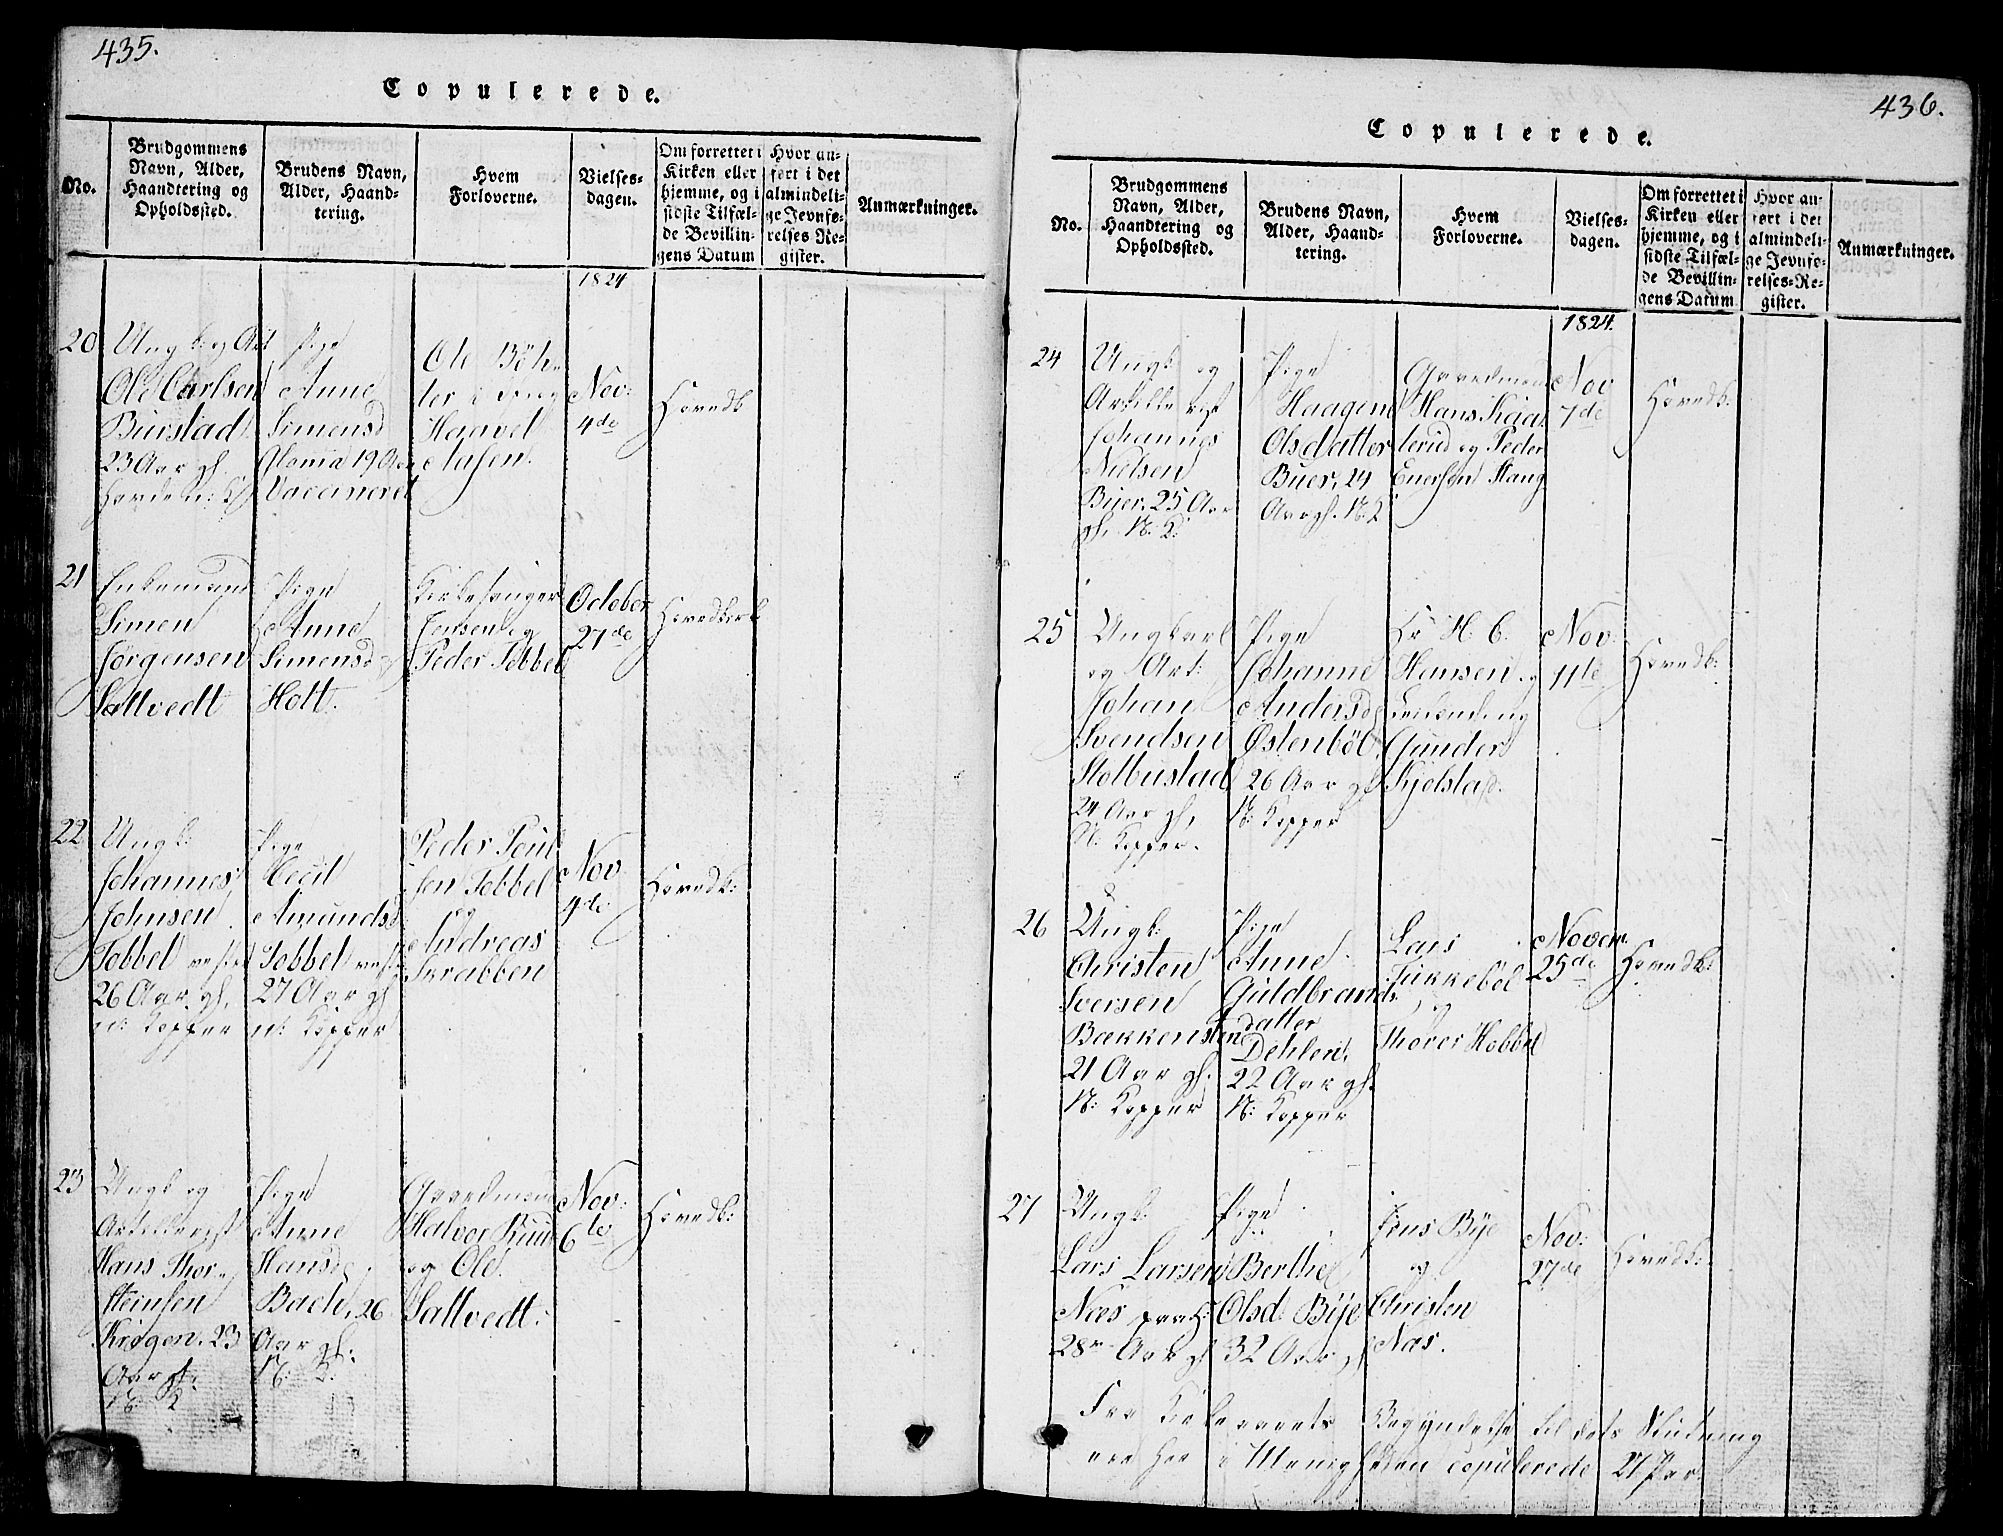 435.
Copulerede.
No.
Brudgommens
Navn, Alder,
Haandtering og
Opholdssted.
Brudens Navn,
Alder, Haand-
tering.
Hvem
Forloverne.
Vielses-
dagen.
Om forrettet i
Kirken eller
hjemme, og i
sidste Tilfæl-
de Bevillin-
gens Datum
Hvor an-
ført i det
almindeli-
ge Jevnfø-
relses Re-
gister.
Anmærkninger.
1824
20
Ungk og Art
Ole Carlsen
Burstad
23 Aar gl.
Pige
Anne
Simensd
19 Aar
Vaccineret
Ole Böh-
ler
Haavel
Nov:
4de
Hovedk
21
Enkemand
Simen
Jörgensen
Sattvedt
Pige
Anne
Simensd
Holt.
Kirkesanger
Jensen og
Peder Tobbel
October
27de
Hovedkirk
22
Ungk:
Johannes
Johnsen
Tobbel
26 Aar gl.
n: Kopper
Pige
Cecil
Amundsd
Tobbel
27 Aar gl
n: Kopper
Peder Poul
sen Tobbel
og
Andreas
Skrabben
Nov
4de
Hovedk:
23
Ungk og
Artillerist
Hans Thor-
steinsen
Krogen. 23
Aar gl.
N: K
Pige
Anne
Hansd
Bach, 26
Aar gl:
N: K:
Gaardmand
Halvor Ruud
og Ole
Sattvedt.
Nov:
6te
Hovedk:
436.
Copulerede.
No.
Brudgommens
Navn, Alder,
Haandtering og
Opholdssted.
Brudens Navn,
Alder, Haand-
tering.
Hvem
Forloverne.
Vielses-
dagen.
Om forrettet i
Kirken eller
hjemme, og i
sidste Tilfæl-
de Bevillin-
gens Datum
Hvor an-
ført i det
almindeli-
ge Jevnfø-
relses-Re-
gister.
Anmærkninger.
1824.
24
Ungk: og
Artillerist
Johannes
Nielsen
Buer, 25 Aar
gl. N: K:
Pige
Haagine
Olsdatter
Buer, 24
Aar gl. N: K
Gaardmand
Hans Kaa-
lerud og Peder
Enersen Haug
Nov
7de
Hovedk:
25
Ungkarl
og Art:
Johan
Svendsen
Stotbustad
24 Aar gl,
N: Kopper.
Pige
Johanne
Andersd
Østenböl
26 Aar gl
N: Kopper
Hr H. C.
Hansen og
Gunder
Kjelstad.
Nov:
11te
Hovedk:
26
Ungk:
Christen
Iversen
Bækkensten
21 Aar gl.
N: Kopper
Pige
Anne
Guldbrands
datter
Dehlen.
22 Aar gl.
N: Kopper
Lars
Tukkeböl
og
Thover Hobbel
Novem.
25de
Hovedk:
27
Ungk:
Lars Larsen
Næs
28 Aar gl
Pige
Berthe
Olsd: Bije
32 Aar gl
Jens Bije
og
Christen
Næs.
Nov:
27de
Hovedk:
Fra Kirkeaarets Begyndelse til dets Slutning
ere her i Menigheden copulerede 27 Par.